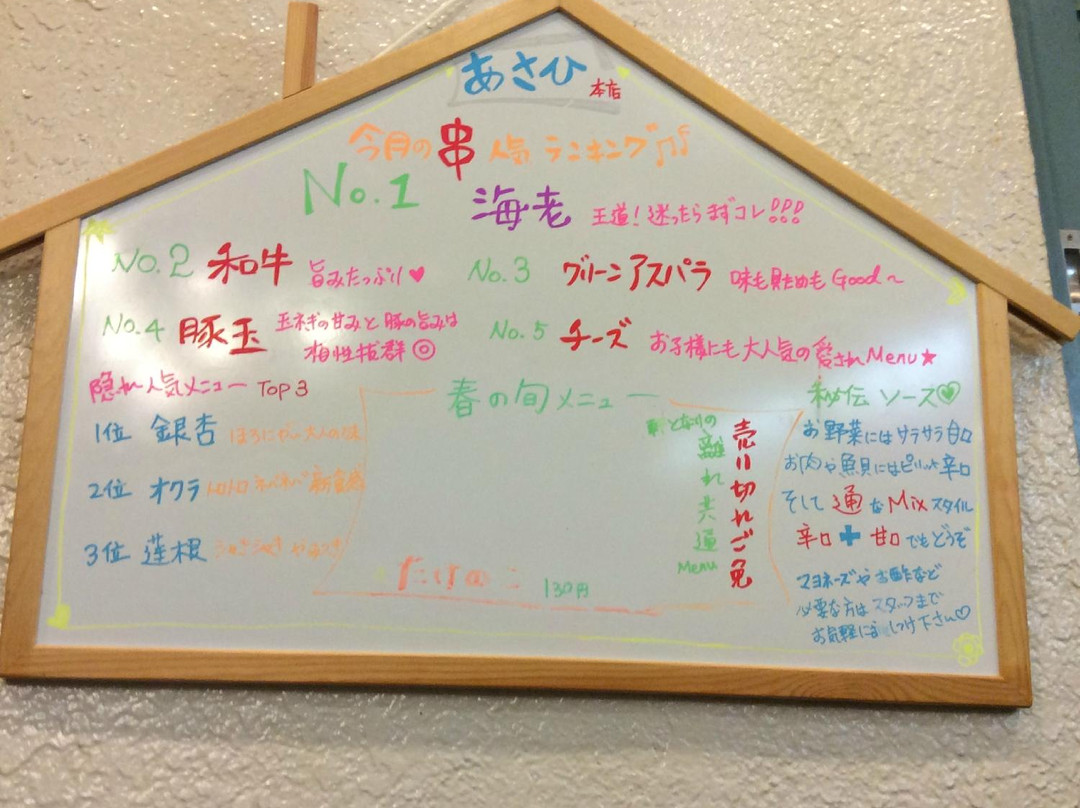 あさひ 本店
今月の串人気ランキング♫♫
No.1 海老 王道！迷ったらまずコレ!!!
No.2 和牛 旨みたっぷり♥
No.3 グリーンアスパラ 味も見ためもGood～
No.4 豚玉 玉ネギの甘みと豚の旨みは
相性抜群◎
No.5 チーズ お子様にも大人気の愛されMenu★
隠れ人気メニュー TOP3
1位 銀杏 ほろにがい大人の味
2位 オクラ トロトロネバネバ新食感
3位 蓮根
春の旬メニュー
たけのこ 130円
となりの
離れ共通
Menu
売り切れご免
秘伝ソース♡
お野菜にはサラサラ甘口
お肉や魚貝にはピリッと辛口
そして通なMixスタイル
辛口＋甘口でもどうぞ
マヨネーズやお酢など
必要な方はスタッフまで
お気軽に しつけ下さい♡